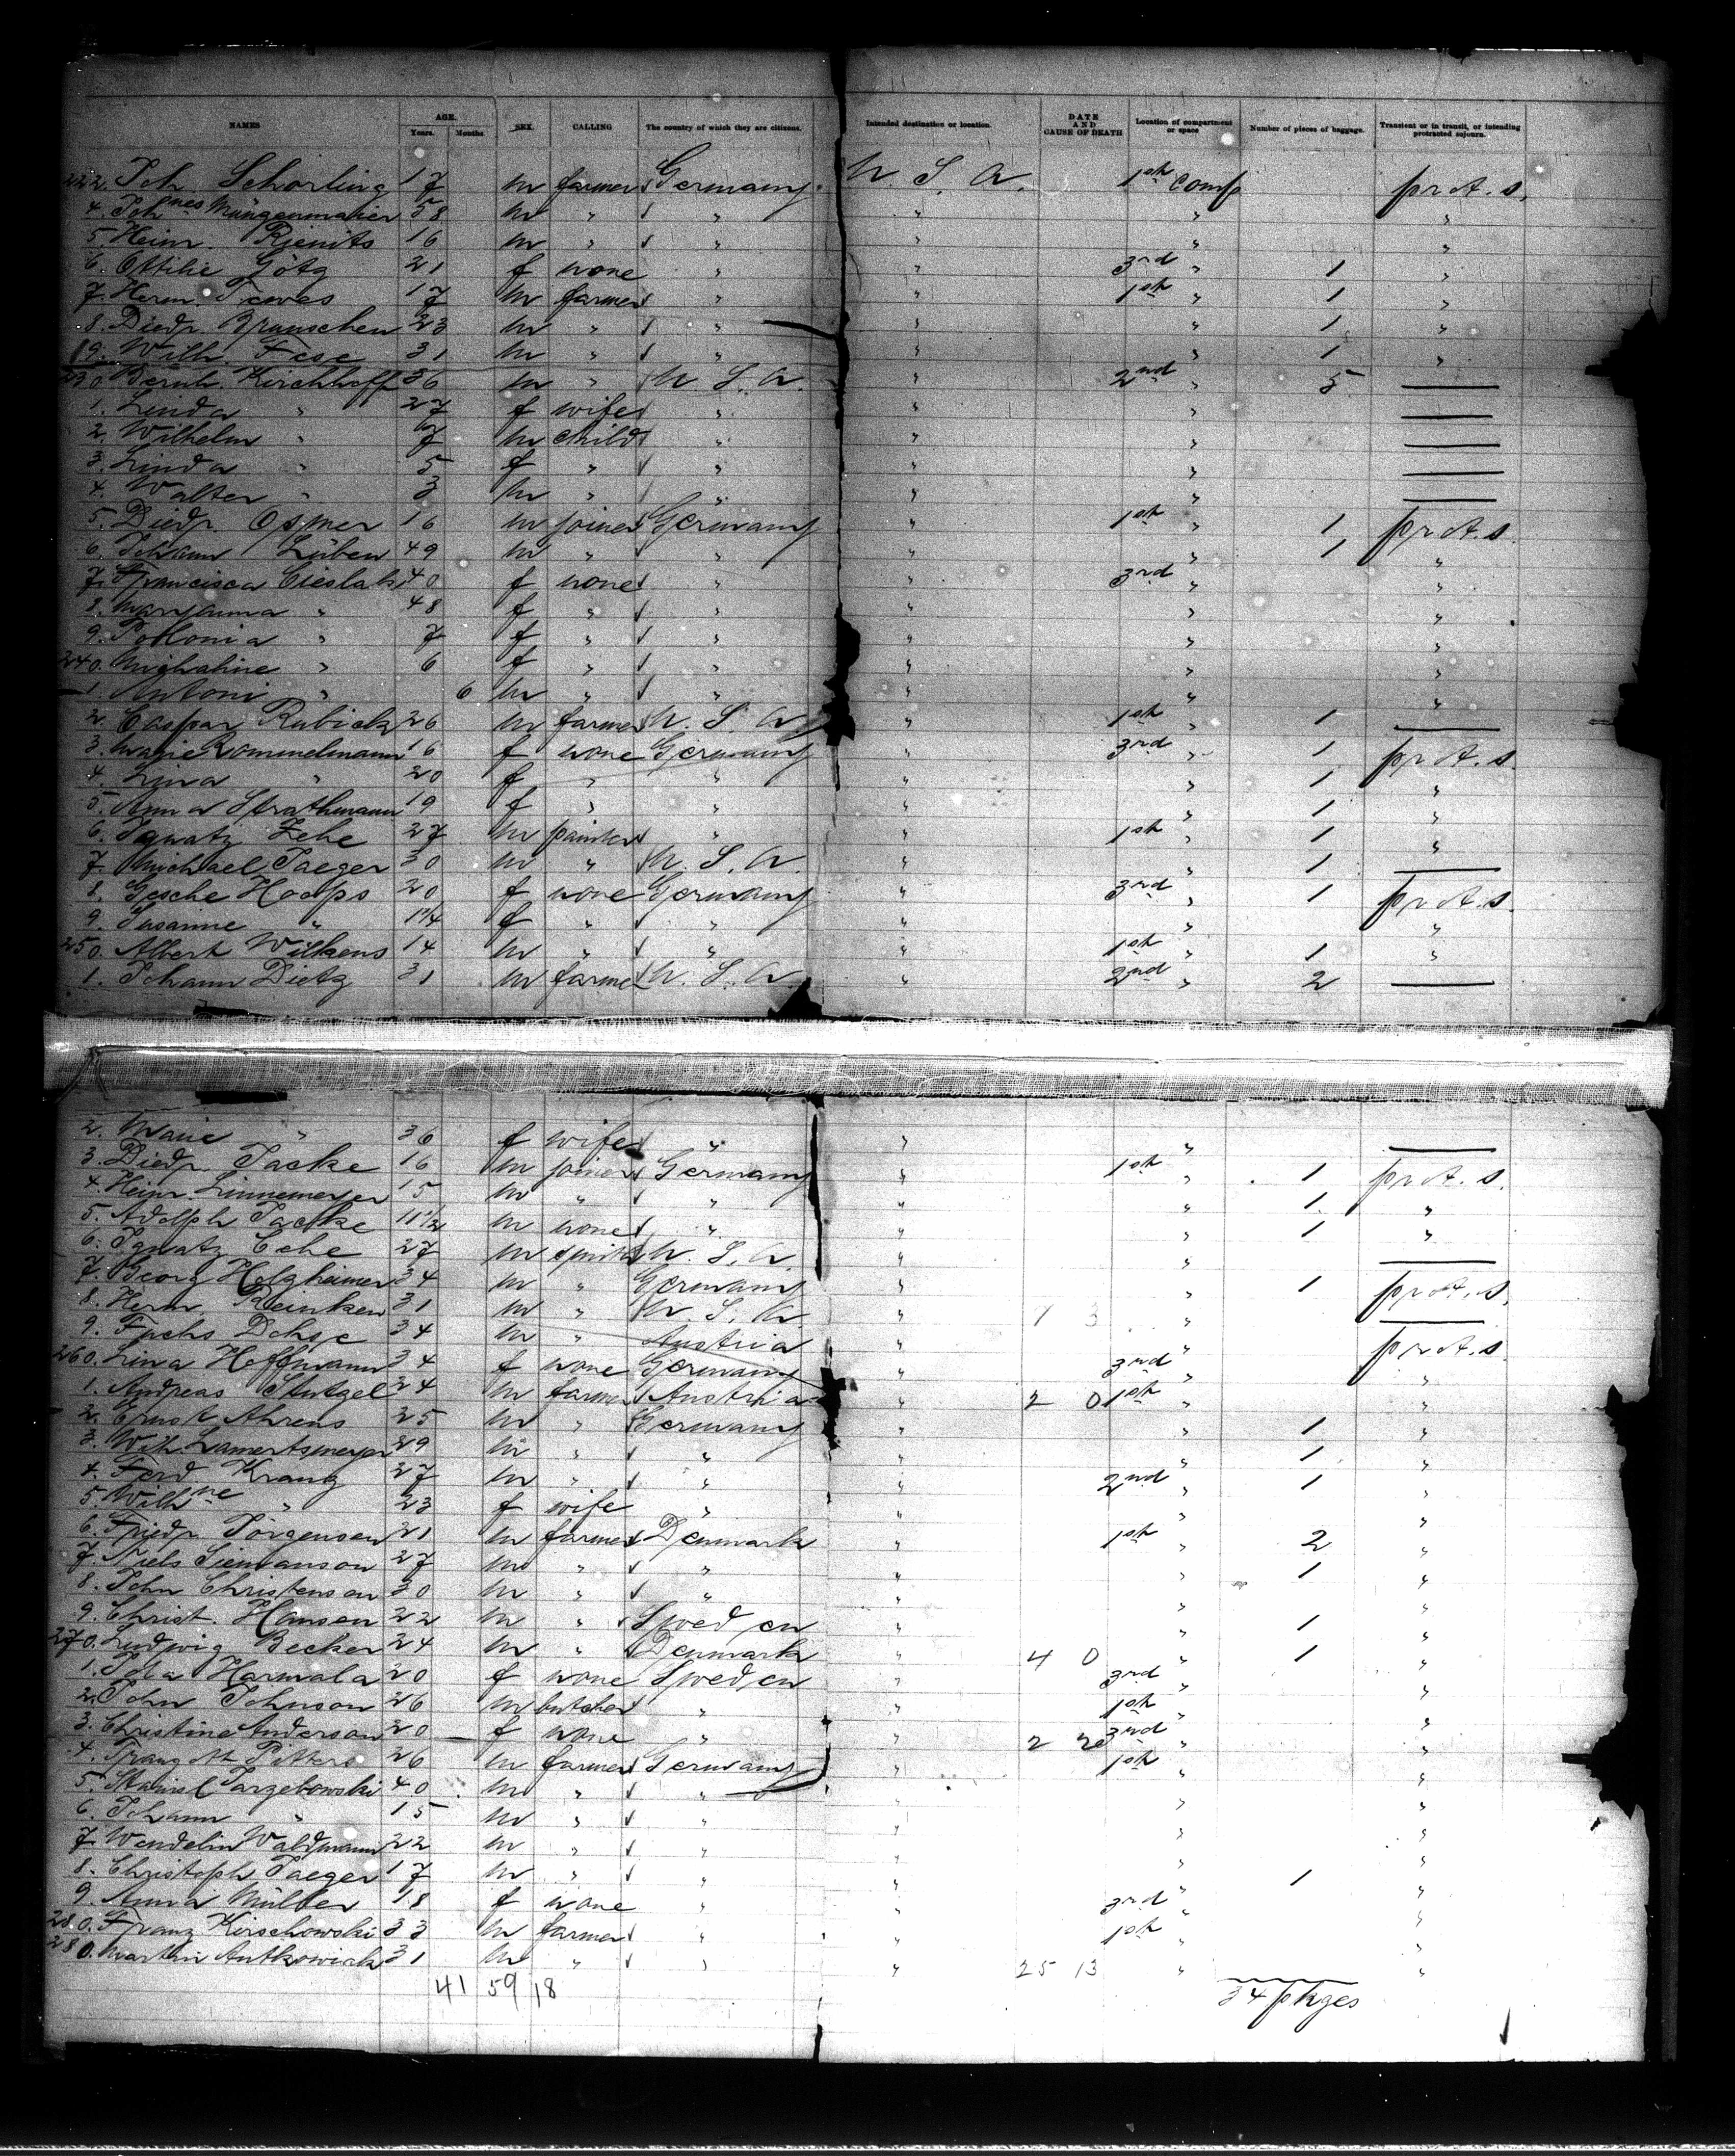 NAMES AGE. Years. Months. SEX. CALLING The country of which they are citizens. Intended destination or location. DATE AND CAUSE OF DEATH Location of compartment or space Number of pieces of baggage. Transient or in transit, or intending protracted sojourn.
222. Joh. Schorling 17 m farmer Germany. U. S. A. 1st Comp prot. s.
4. Johnes Müngenmaier 58 m " " " " "
5. Heinr. Rienits 16 m " " " " "
6. Ottilie Götz 21 f none " " 3rd " 1 "
7. Herm. Treves 17 m farmer " " 1st " 1 "
8. Diedr. Brunschen 23 m " " " " 1 "
19. Wilh. Fese 31 m " " " " 1 "
230. Bernh. Kirchhoff 36 m " U. S. A. " 2nd " 5 —
1. Linda " 27 f wife " " " —
2. Wilhelm " 7 m child " " " —
3. Linda " 5 f " " " " —
4. Walter " 3 m " " " " —
5. Diedr. Osmer 16 m joiner Germany " 1st " 1 prot. s.
6. Johann Lüben 49 m " " " " 1 "
7. Francisca Cieslak 40 f none " " 3rd " "
8. Maryanna " 48 f " " " " "
9. Pollonia " 7 f " " " " "
240. Michaline " 6 f " " " " "
1. Antoni " 6 m " " " " "
2. Caspar Rubick 26 m farmer U. S. A. " 1st " 1 —
3. Marie Rommelmann 16 f none Germany " 3rd " 1 prot. s.
4. Lina " 20 f " " " " 1 "
5. Anna Strathmann 19 f " " " " 1 "
6. Ignatz Zehe 27 m painter " " 1st " 1 "
7. Michael Jaeger 30 m " U. S. A. " " 1 —
8. Gesche Hoops 20 f none Germany " 3rd " 1 prot. s.
9. Susanne " 1 1/4 f " " " " "
250. Albert Wilkens 14 m " " " 1st " 1 "
1. Johann Dietz 31 m farmer U. S. A. " 2nd " 2 —
2. Marie " 36 f wife " " " —
3. Diedr. Tacke 16 m joiner Germany " 1st " 1 prot. s.
4. Heinr. Linnemeyer 15 m " " " " 1 "
5. Adolph Tacke 11 1/2 m none " " " 1 "
6. Ignatz Eche 27 m U. S. A. " " —
7. Georg Holzheimer 34 m " Germany " " 1 prot. s.
8. Herm Reinken 31 m " U. S. A. " 7 3 " —
9. Fuchs 34 m " Austria " " prot. s.
260. Lina Hoffmann 34 f none Germany " 3rd " "
1. Andreas Stutgel 24 m farmer Austria " 2 0 1st " "
2. Ernst Ahrens 25 m " Germany " " 1 "
3. Wilh. Lamertsmeyer 29 m " " " " 1 "
4. Ferd. Kranz 27 m " " " 2nd " 1 "
5. Wilhne " 23 f wife " " " "
6. Friedr. Jörgensen 21 m farmer Denmark " 1st " 2 "
7. Niels Siemanson 27 m " " " " 1 "
8. John Christenson 30 m " " " " "
9. Christ. Hansen 22 m " Sweden " " 1 "
270. Ludwig Becker 24 m " Denmark " 4 0 " 1 "
1. Ida Harmala 20 f none Sweden " 3rd " "
2. John Johnson 26 m butcher " " 1st " "
3. Christine Anderson 20 f none " " 2 20 3rd " "
4. 26 m farmer Germany " 1st " "
5. Stanisl Jarzebowski 40 m " " " " "
6. Johann " 15 m " " " " "
7. Wendelin Waldmann 22 m " " " " "
8. Christoph Jaeger 17 m " " " " 1 "
9. Anna Müller 18 f none " " 3rd " "
28.0. Franz Kirschowski 33 m farmer " " 1st " "
280. Martin Antkowiak 31 m " " " 25 13 " "
41 59 18 34 pkges